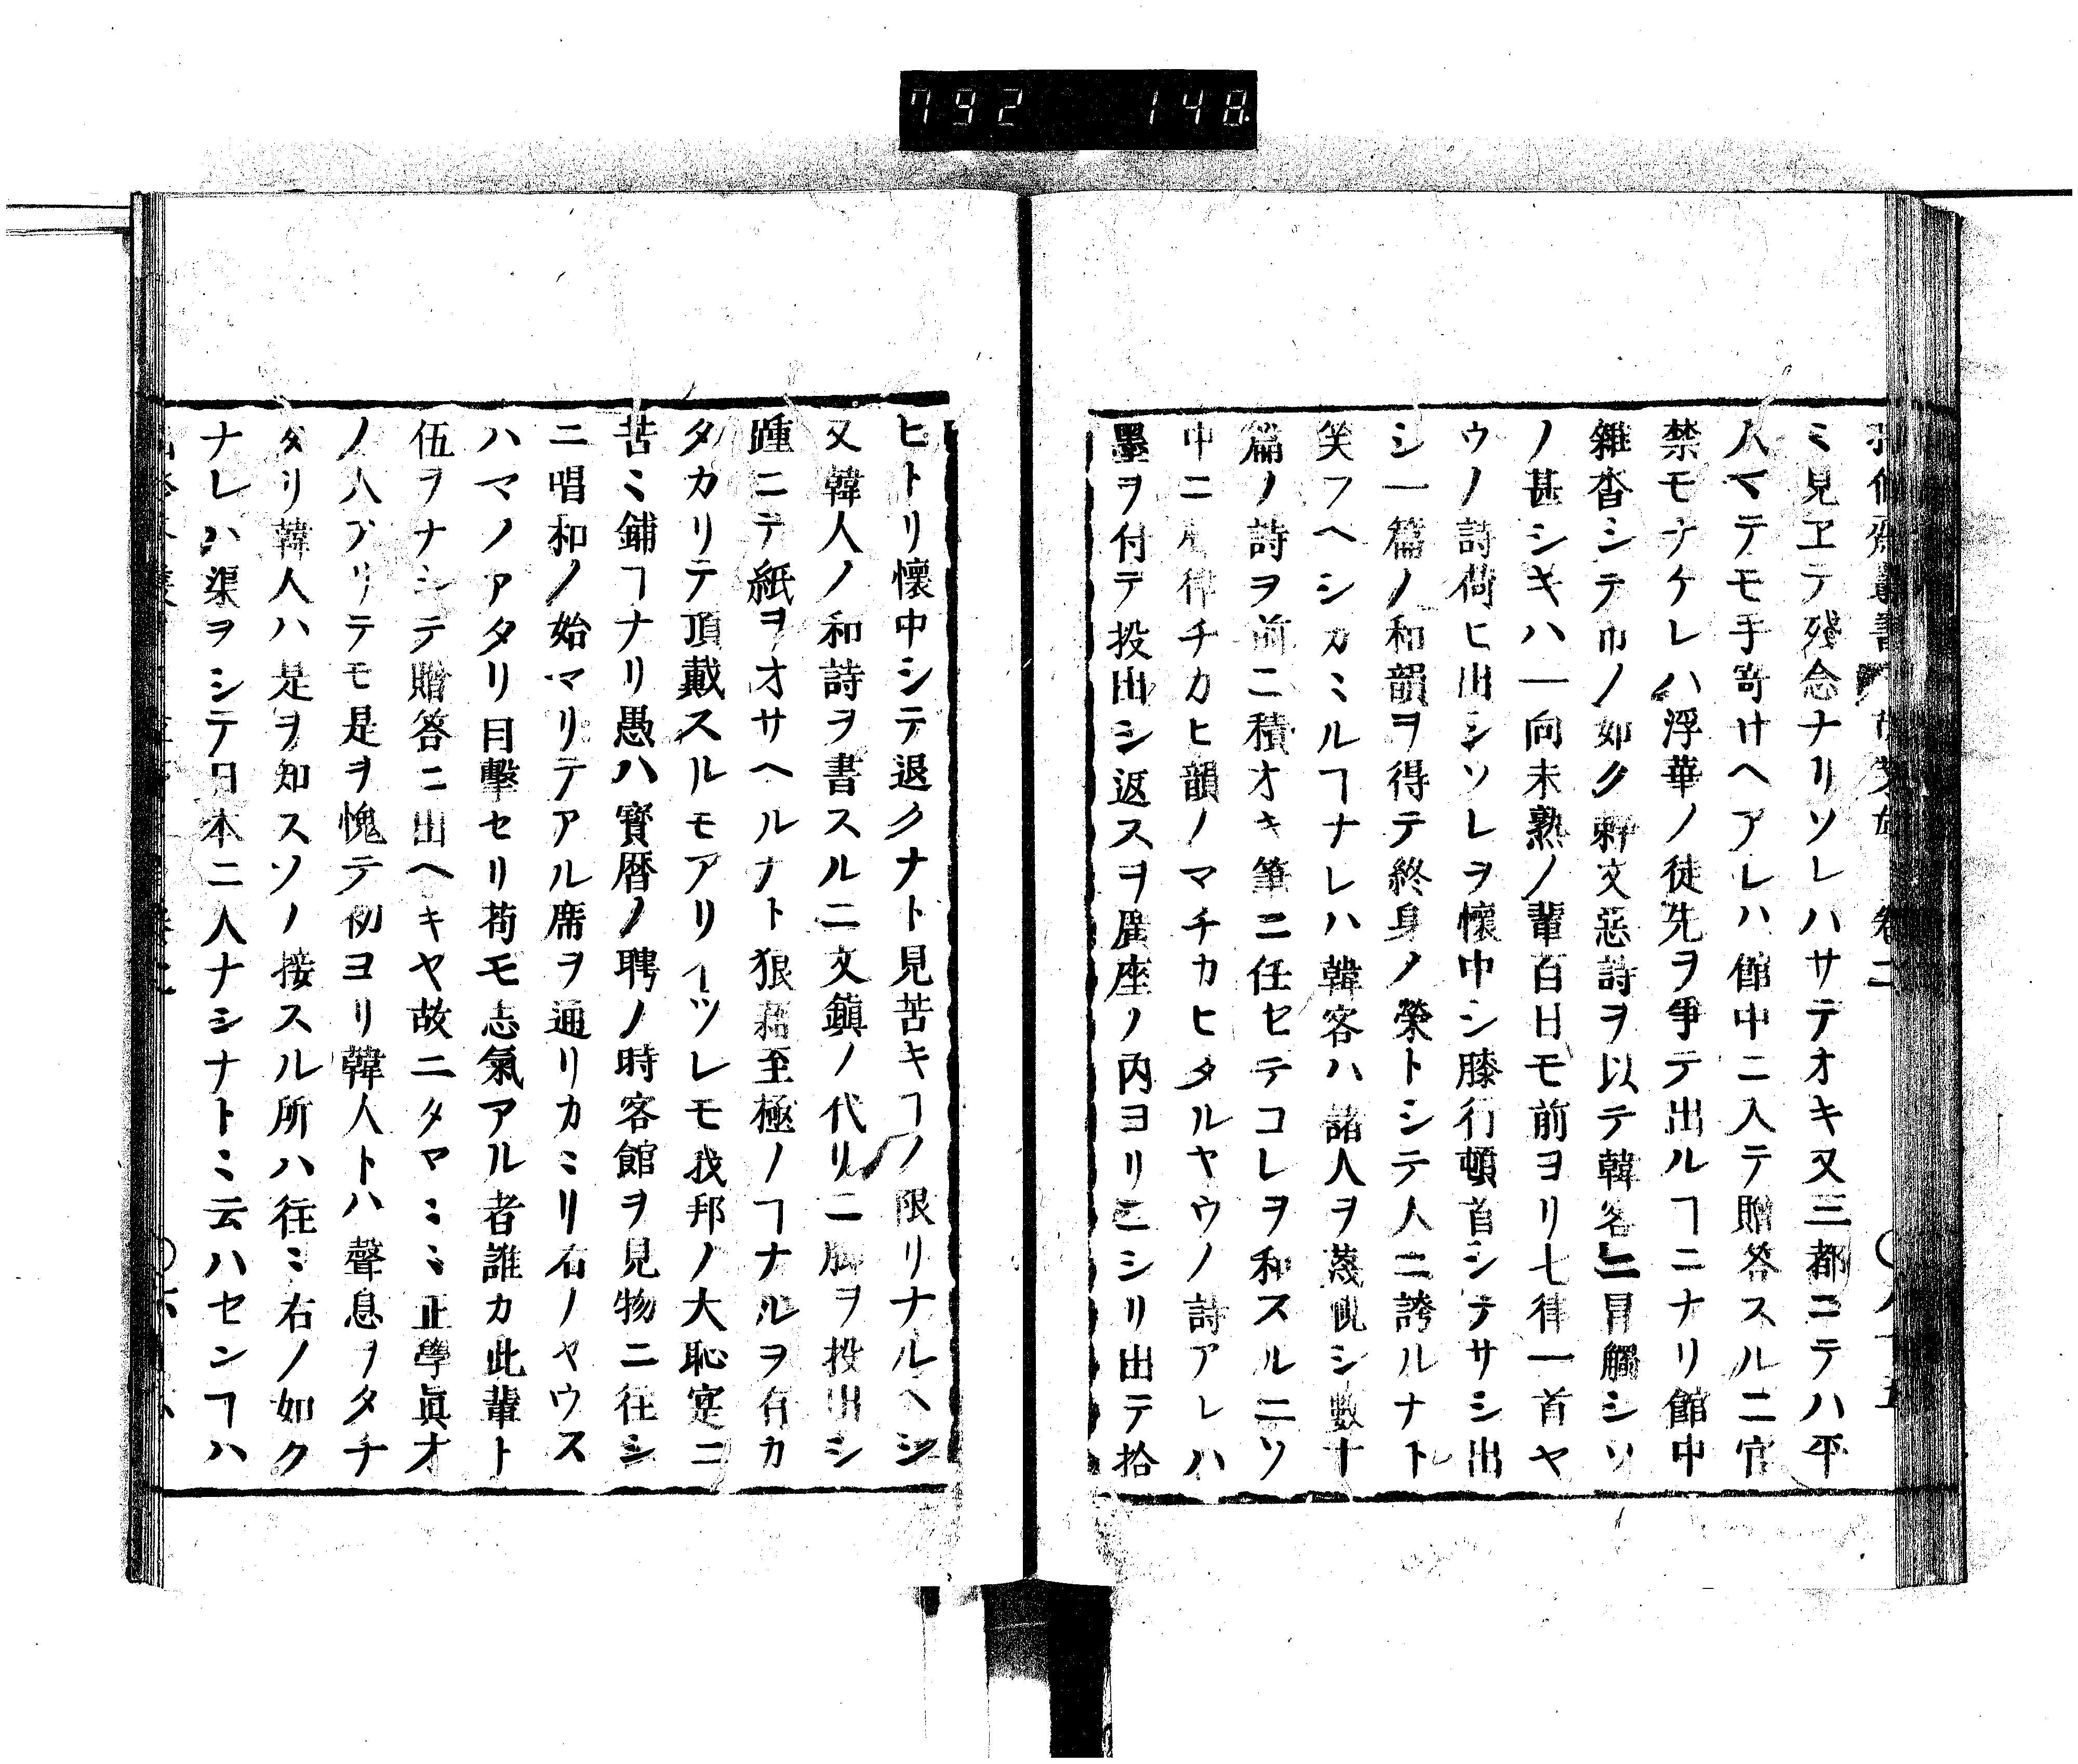 792 148
ミ見ヱテ殘念ナリソレハサテオキ又三都ニテハ平
人マテモ手寄サヘアレハ館中ニ入テ贈答スルニ官
禁モナケレハ浮華ノ徒先ヲ爭テ出ルヿニナリ館中
雜沓シテ市ノ如ク辭文惡詩ヲ以テ韓客ニ冒觸シソ
ノ甚シキハ一向未熟ノ輩百日モ前ヨリ七律一首ヤ
ウノ詩荷ヒ出シソレヲ懷中シ膝行頓首シテサシ出
シ一篇ノ和韻ヲ得テ終身ノ榮トシテ人ニ誇ルナト
笑フヘシカミルヿナレハ韓客ハ諸人ヲ蔑視シ數十
篇ノ詩ヲ前ニ積オキ筆ニ任セテコレヲ和スルニソ
中ニ律チカヒ韻ノマチカヒタルヤウノ詩アレハ
墨ヲ付テ投出シ返スヲ廣座ノ内ヨリニシリ出テ拾
ヒトリ懷中シテ退クナト見苦キヿノ限リナルヘシ
又韓人ノ和詩ヲ書スルニ文鎭ノ代リニ脚ヲ投出シ
踵ニテ紙ヲオサヘルナト狼藉至極ノヿナルヲ有カ
タカリテ頂戴スルモアリイツレモ我邦ノ大恥寔ニ
苦ミ鋪ヿナリ愚ハ寶暦ノ聘ノ時客館ヲ見物ニ往シ
ニ唱和ノ始マリテアル席ヲ通リカミリ右ノヤウス
ハマノアタリ目擊セリ苟モ志氣アル者誰カ此輩ト
伍ヲナシテ贈答ニ出ヘキヤ故ニタマミミ正學眞才
ノ人アリテモ是ヲ愧テ初ヨリ韓人トハ聲息ヲタチ
タリ韓人ハ是ヲ知スソノ接スル所ハ往ミ右ノ如ク
ナレハ渠ヲシテ日本ニ人ナシナトミ云ハセンヿハ